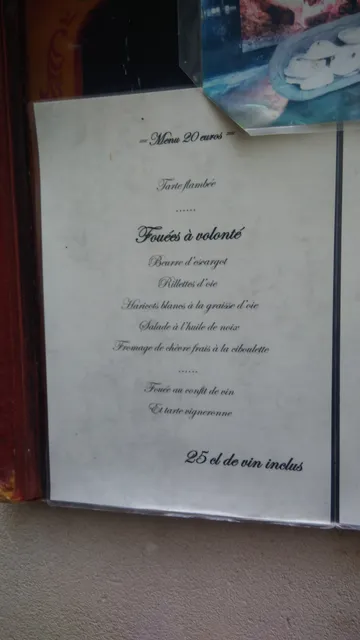 = Menu 20 euros =
Tarte flambée
......
Fouées à volonté
Beurre d'escargot
Rillettes d'oie
Haricots blancs à la graisse d'oie
Salade à l'huile de noix
Fromage de chèvre frais à la ciboulette
......
Fouée au confit de vin
Et tarte vigneronne
25 cl de vin inclus